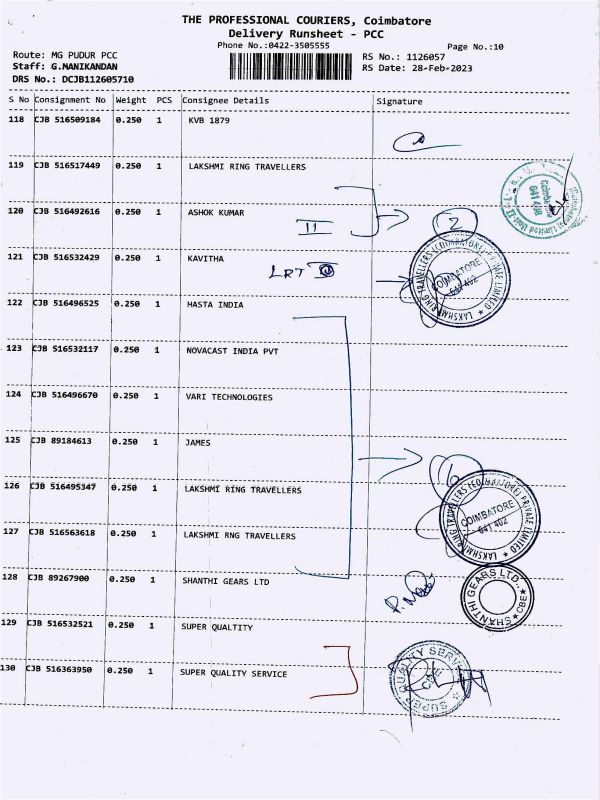 THE PROFESSIONAL COURIERS, Coimbatore
Delivery Runsheet - PCC
Phone No.:0422-3505555
Page No.:10
Route: MG PUDUR PCC
Staff: G.MANIKANDAN
DRS No.: DCJB112605710
RS No.: 1126057
RS Date: 28-Feb-2023
S No Consignment No Weight PCS Consignee Details Signature
118 CJB 516509184 0.250 1 KVB 1879
119 CJB 516517449 0.250 1 LAKSHMI RING TRAVELLERS
120 CJB 516492616 0.250 1 ASHOK KUMAR
II
2
COIMBATORE
641 402
LAKSHMI RING TRAVELLERS (COIMBATORE) PRIVATE LIMITED
121 CJB 516532429 0.250 1 KAVITHA
LRT
122 CJB 516496525 0.250 1 HASTA INDIA
123 CJB 516532117 0.250 1 NOVACAST INDIA PVT
124 CJB 516496670 0.250 1 VARI TECHNOLOGIES
125 CJB 89184613 0.250 1 JAMES
6
126 CJB 516495347 0.250 1 LAKSHMI RING TRAVELLERS
LAKSHMI RING TRAVELLERS (COIMBATORE) PRIVATE LIMITED
COIMBATORE
641 402
127 CJB 516563618 0.250 1 LAKSHMI RNG TRAVELLERS
128 CJB 89267900 0.250 1 SHANTHI GEARS LTD
SHANTHI GEARS LTD. CBE
129 CJB 516532521 0.250 1 SUPER QUALTITY
130 CJB 516363950 0.250 1 SUPER QUALITY SERVICE
SUPER QUALITY SERVICE
CBE